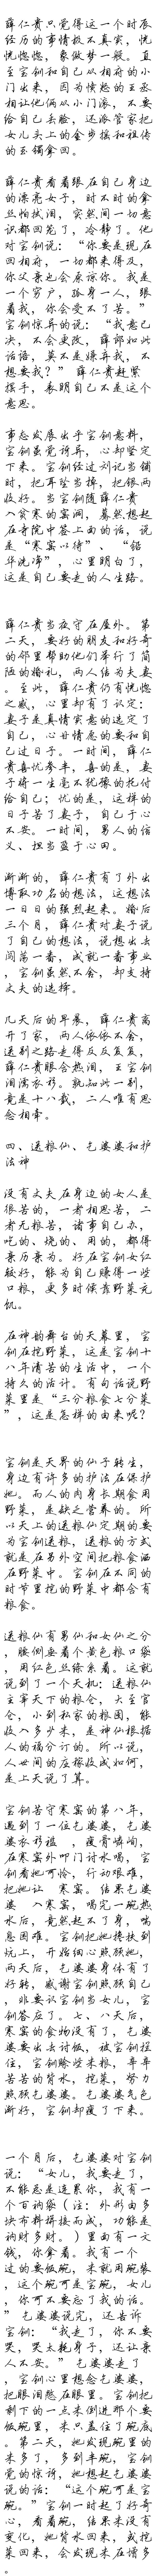 薛仁贵只觉得这一个时辰
经历的事情极不真实，恍
恍惚惚，象做梦一般。直
至宝钏和自己从相府的小
门出来，因为愤怒的王丞
相让他俩从小门滚，不要
给自己丢脸，还派管家把
女儿头上的金步摇和祖传
的玉镯拿回。
薛仁贵看着跟在自己身边
的漂亮女子，时不时的拿
丝帕拭泪，突然间一切意
识都回笼了，冷静了。他
对宝钏说：“你要是现在
回相府，一切都来得及，
你父亲也会原谅你。我是
一个穷户，孤身一人，跟
着我，你会受不了苦。”
宝钏惊异的说：“我意已
决，不会更改，薛郎如此
话语，莫不是嫌弃我，不
想要我？” 薛仁贵赶紧
摆手，表明自己不是这个
意思。
事态发展出乎宝钏意料，
宝钏虽觉诗异，心却坚定
下来。宝钏经过刘记当铺
时，把耳坠当掉，把银两
收好。当宝钏随薛仁贵
入贫寒的窑洞，蓦然想起
在寺院中签上面的话，说
是“寒窑以待”、“铅
华洗净”，心里明白了，
这是自己要走的人生路。
薛仁贵当夜守在屋外。第
二天，要好的朋友和好奇
的邻里帮助他们举行了简
陋的婚礼，两人结为夫妻
。至此，薛仁贵仍有恍惚
之感，心里却有了认定：
妻子是真情实意的选定了
自己，心甘情愿的要和自
己过日子。一时间，薛仁
贵喜忧参半，喜的是，妻
子将一生毫不犹豫的托付
给自己；忧的是，这样的
日子苦了妻子，自己于心
不安。一时间，男人的信
义、担当盈于心田。
渐渐的，薛仁贵有了外出
博取功名的想法，这想法
一日日的强烈起来。婚后
三个月，薛仁贵对妻子说
了自己的想法，说想出去
闯荡一番，成就一番事业
，宝钏虽然不舍，却支持
丈夫的选择。
几天后的早晨，薛仁贵离
开了家，两人依依不舍，
送别之路走得反反复复，
薛仁贵眼含热泪，王宝钏
泪濡衣衫。孰知此一别，
竟是十八载，二人唯有思
念相牵。
四、送粮仙、乞婆婆和护
法神
没有丈夫在身边的女人是
很苦的，一者相思苦，二
者无粮苦，诸事自己办，
吃的、烧的、用的，都得
亲历亲为。好在宝钏女红
较好，能为自己赚得一些
口粮，更多时候靠野菜充
饥。
在神韵舞台的天幕里，宝
钏在挖野菜，这是宝钏十
八年清苦的生活中，一个
持久的活计。有句话说野
菜里是“三分粮食七分菜
”，这是怎样的由来呢？
宝钏是天界的仙子转生，
身边有许多的护法在保护
她。而人的肉身长期食用
野菜，是缺乏营养的。所
以天上的送粮仙定期的要
为宝钏送粮，送粮的方式
就是在另外空间把粮食洒
在野菜中。宝钏在不同的
时节里挖的野菜中都含有
粮食。
送粮仙有男仙和女仙之分
，腰侧要着个黄色粮口袋
，用红色丝绦系着。这就
说到了一个天机：送粮仙
主宰天下的粮仓，大至官
仓，小到私家的粮囤，能
收入多少米，是神仙根据
人的福分订的。所以说，
人世间的庄稼收成如何，
是上天说了算。
宝钏苦守寒窑的第八年，
遇到了一位乞婆婆，乞婆
婆衣衫褴 ，瘦骨嶙峋，
在寒窑外叩门讨水喝，宝
钏看她可怜，行动艰难，
把她让 寒窑。结果乞婆
婆 入寒窑，喝完一碗热
水后，竟然起不了身，喘
息困难。宝钏把她搀扶到
炕上，开始细心照顾她，
两天后，乞婆婆身体有了
好转，感谢宝钏照顾自己
，非要认宝钏当女儿，宝
钏答应了。七、八天后，
寒窑的食物没有了，乞婆
婆要出去讨饭，被宝钏拦
住，宝钏赊些米粮，辛辛
苦苦的背水，挖菜，努力
照顾乞婆婆。乞婆婆气色
渐好，宝钏却瘦了下来。
一个月后，乞婆婆对宝钏
说：“女儿，我要走了，
不能总是连累你，我有一
个百衲袋（注：外形由多
块布料拼接而成，功能是
纳财多财。）里面有一文
钱，你拿着。我有一个
过的要饭碗，米就用碗装
，这个碗可是宝碗，女儿
，你可不要忘了我的话。
” 乞婆婆说完，还告诉
宝钏：“我走了，你不要
哭，哭太耗身子，还让亲
人不安。” 乞婆婆走了
，宝钏心里想念乞婆婆，
把眼泪憋在眼里。宝钏把
剩下的一点米倒进那个要
饭碗里，米只盖住了碗底
。第二天，她发现碗里的
米多了，多到半碗，宝钏
觉的惊讶，她想起乞婆婆
说的话：“这个碗可是宝
碗。”宝钏一时起了好奇
心，看着碗，结果米没有
变化，她背水回来，或挖
菜回来，会发现米在增多
。